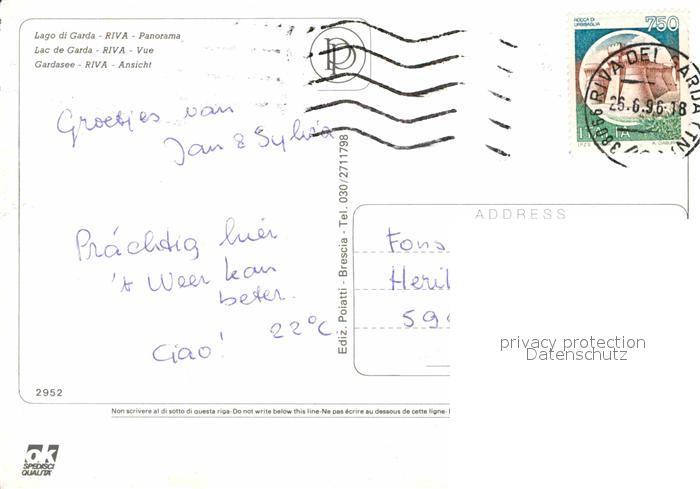 Lago di Garda - RIVA - Panorama
Lac de Garda - RIVA - Vue
Gardasee - RIVA - Ansicht
ROCCA DI
URBISAGLIA
750
ITALIA
I.P.Z.S.
38066 RIVA DEL GARDA (TN)
26.6.96.18
Groetjes van
Jan & Sylvia
Práchtig hier
't Weer kan
beter.
22°C.
Ciao!
Ediz. Poiatti - Brescia - Tel. 030/2711798
ADDRESS
Fons
Heril
59
privacy protection
Datenschutz
2952
Non scrivere al di sotto di questa riga-Do not write below this line-Ne pas écrire au dessous de cette ligne-
ok
SPEDISCI
QUALITA'